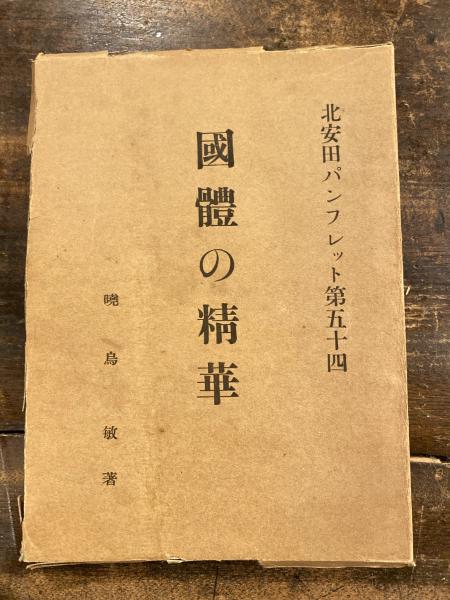 北安田パンフレット第五十四
國體の精華
曉烏敏著